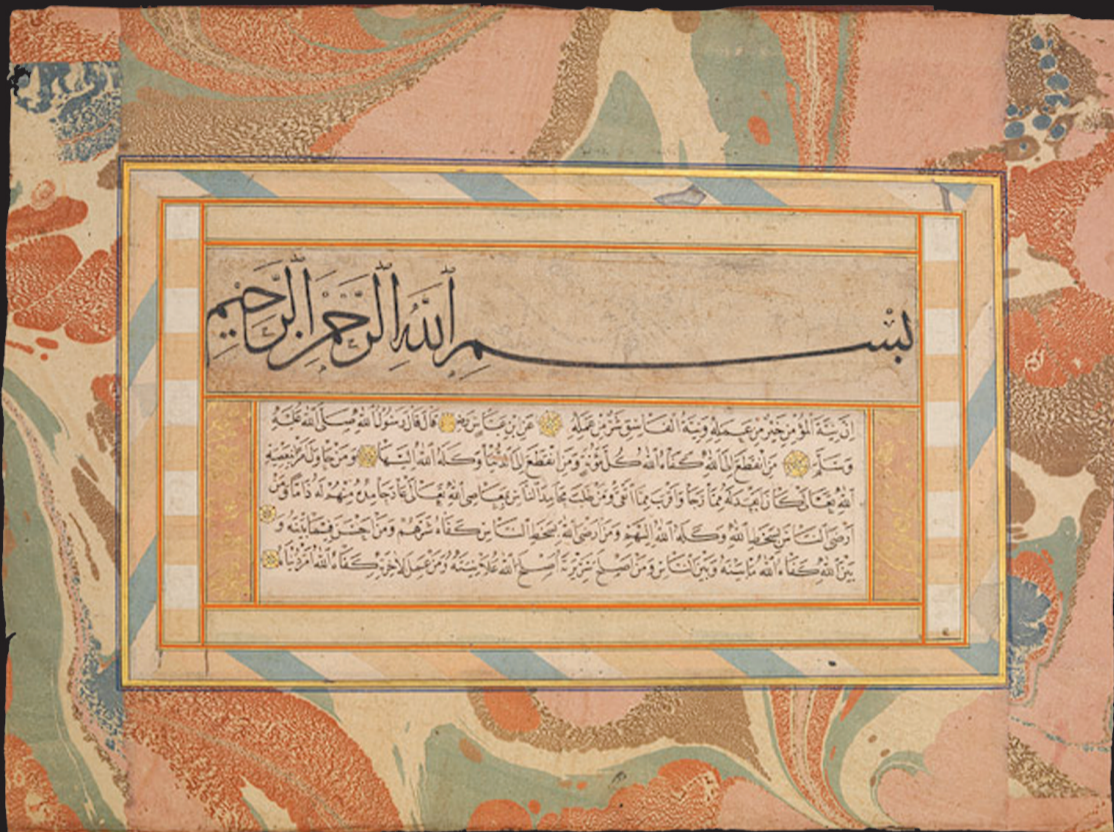 بِسْمِ اللهِ الرَّحْمٰنِ الرَّحِيمِ
اِنَّ نِيَّةَ الْمُؤْمِنِ خَيْرٌ مِنْ عَمَلِهِ وَنِيَّةُ الْفَاسِقِ شَرٌّ مِنْ عَمَلِهِ عَنِ ابْنِ عَبَّاسٍ رَضِيَ قَالَ قَالَ رَسُولُ اللهِ صَلَّى اللهُ عَلَيْهِ
وَسَلَّمَ مَنِ انْقَطَعَ اِلَى اللهِ كَفَاهُ اللهُ كُلَّ مُؤْنَةٍ وَمَنِ انْقَطَعَ اِلَى الدُّنْيَا وَكَلَهُ اللهُ اِلَيْهَا وَمَنْ حَاوَلَ اَمْرًا بِمَعْصِيَةِ
اللهِ تَعَالَى كَانَ اَبْعَدَ لَهُ مِمَّا رَجَا وَاَقْرَبَ مِمَّا اتَّقَى وَمَنْ طَلَبَ مَحَامِدَ النَّاسِ بِمَعَاصِي اللهِ تَعَالَى عَادَ حَامِدُهُ مِنْهُمْ لَهُ ذَامًّا وَمَنْ
اَرْضَى النَّاسَ بِسَخَطِ اللهِ وَكَلَهُ اللهُ اِلَيْهِمْ وَمَنْ اَرْضَى اللهَ بِسَخَطِ النَّاسِ كَفَاهُ شَرَّهُمْ وَمَنْ اَحْسَنَ فِيمَا بَيْنَهُ وَ
بَيْنَ اللهِ كَفَاهُ اللهُ مَا بَيْنَهُ وَبَيْنَ النَّاسِ وَمَنْ اَصْلَحَ سَرِيرَتَهُ اَصْلَحَ اللهُ عَلَانِيَتَهُ وَمَنْ عَمِلَ لِآخِرَتِهِ كَفَاهُ اللهُ اَمْرَ دُنْيَاهُ